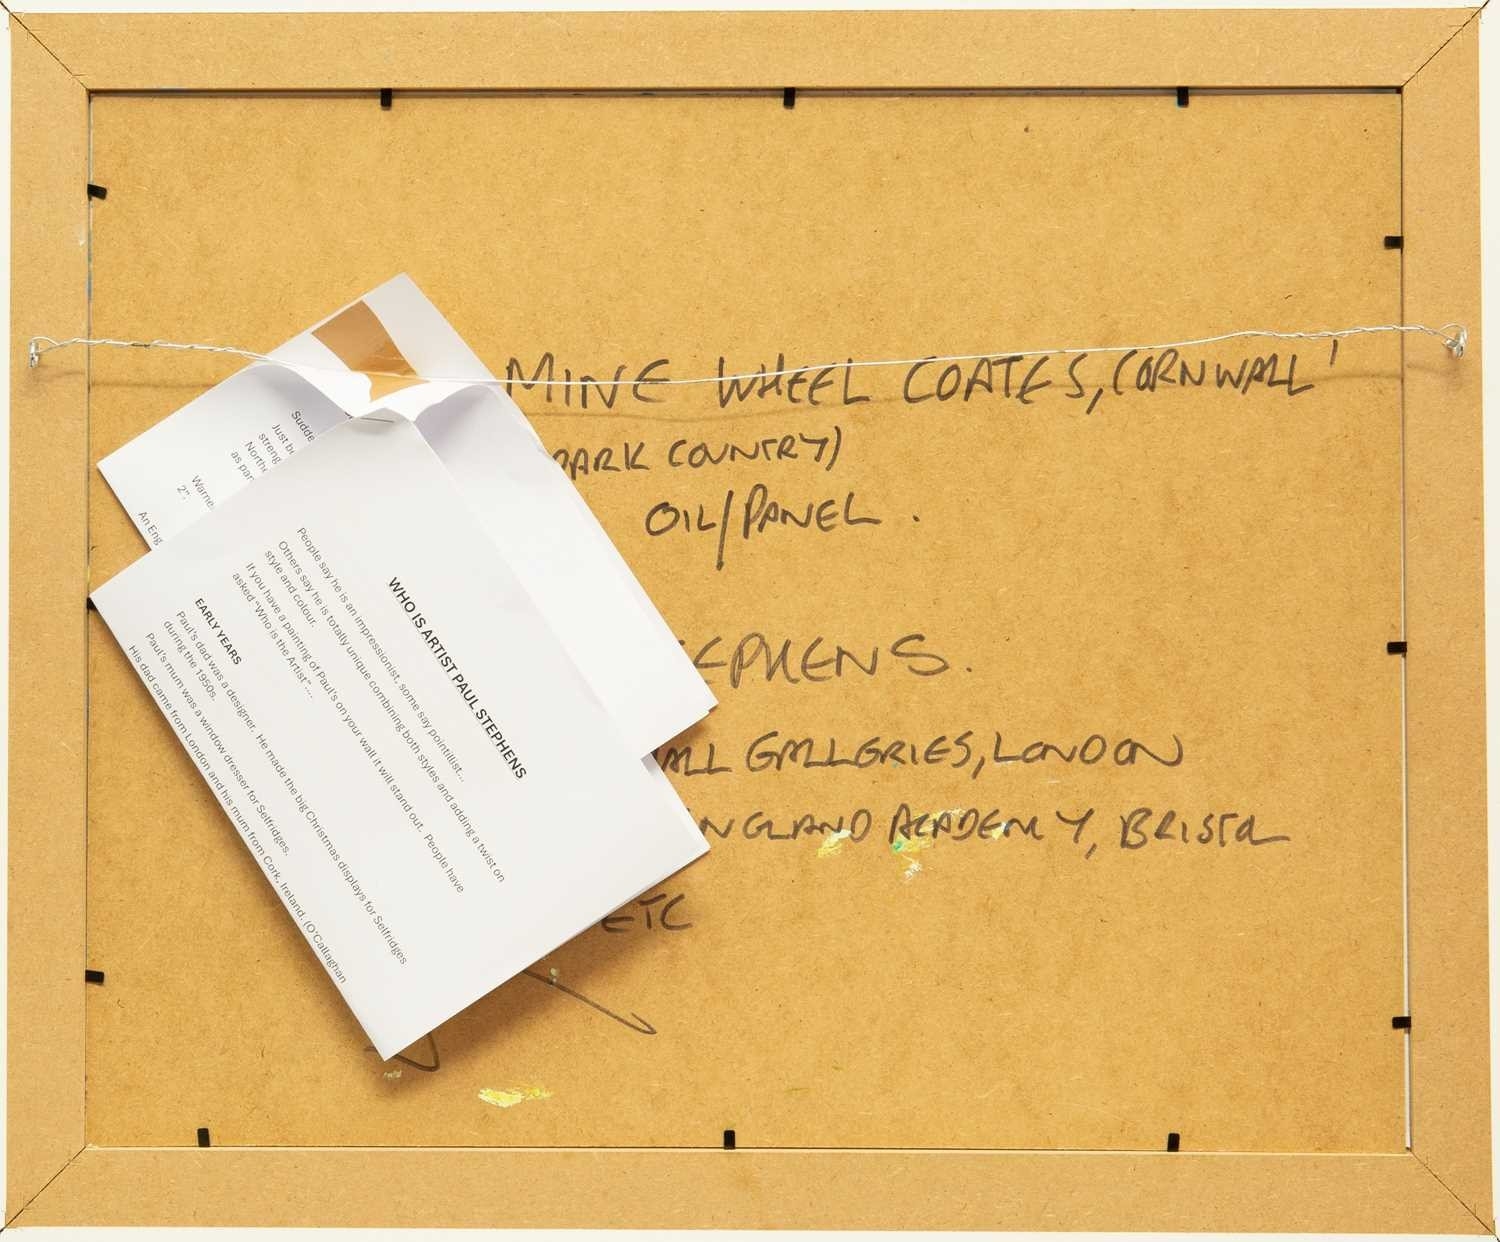 MINE WHEEL COATES, CORNWALL'
PARK COUNTRY)
OIL/PANEL.
EPHENS.
ALL GALLERIES, LONDON
NGLAND ACADEMY, BRISTOL
ETC
Sudde
Just be
streng
Northe
as par
Warne
2".
An Eng
WHO IS ARTIST PAUL STEPHENS
People say he is an impressionist, some say pointillist...
Others say he is totally unique combining both styles and adding a twist on
style and colour.
If you have a painting of Paul's on your wall it will stand out. People have
asked "Who is the Artist"....
EARLY YEARS
Paul's dad was a designer. He made the big Christmas displays for Selfridges
during the 1950s.
Paul's mum was a window dresser for Selfridges.
His dad came from London and his mum from Cork, Ireland. (O'Callaghan